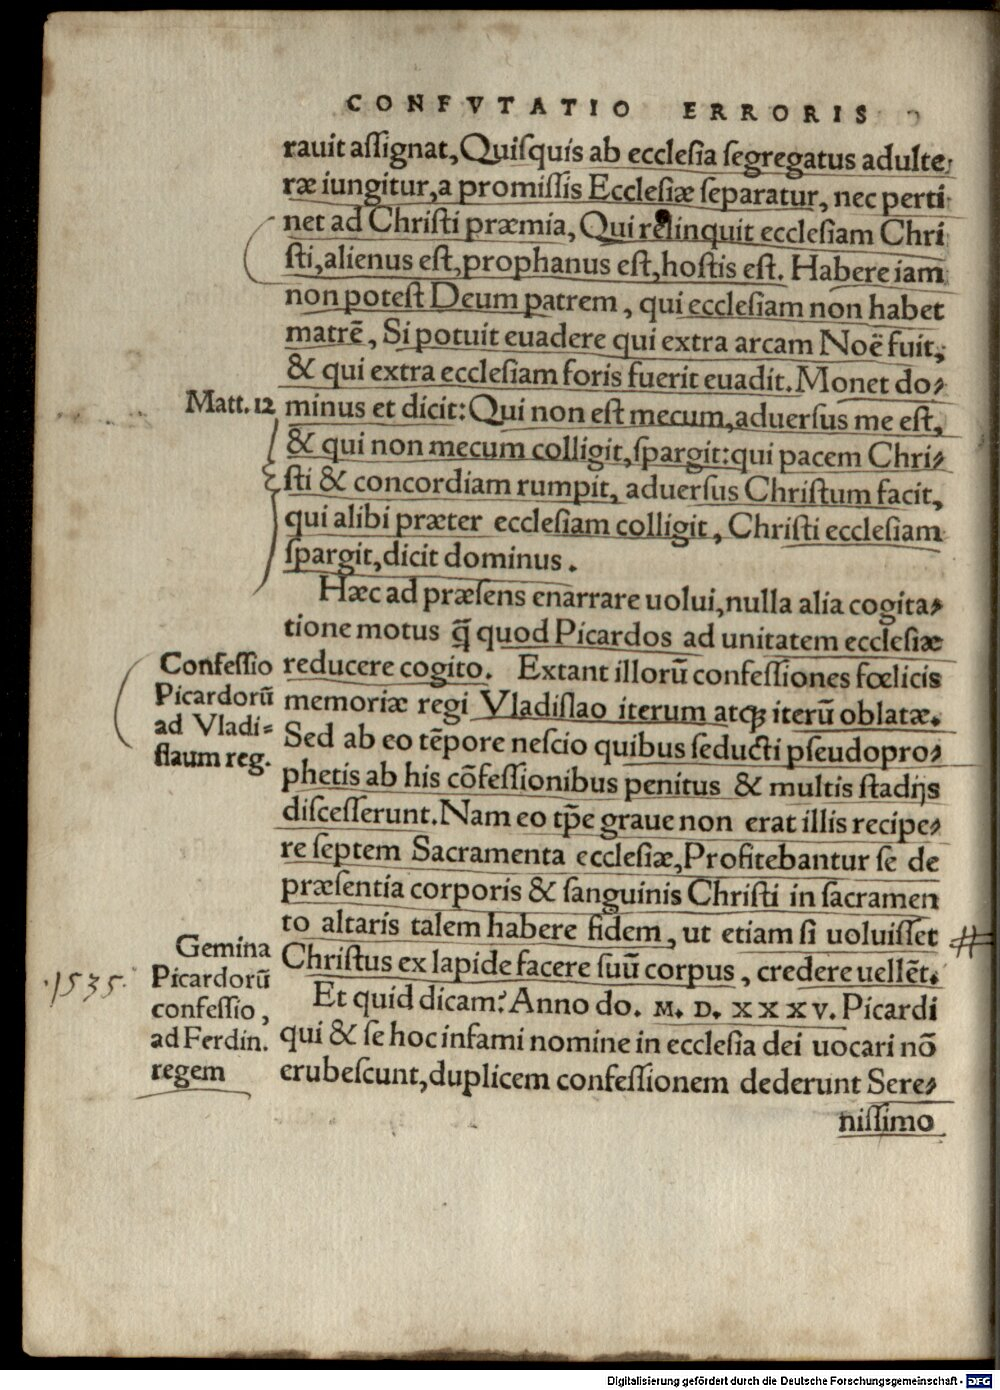 CONFVTATIO ERRORIS
rauit assignat, Quisquis ab ecclesia segregatus adulte-
ræ iungitur, a promissis Ecclesiæ separatur, nec perti
net ad Christi præmia, Qui relinquit ecclesiam Chri
sti, alienus est, prophanus est, hostis est. Habere iam
non potest Deum patrem, qui ecclesiam non habet
matrẽ, Si potuit euadere qui extra arcam Noë fuit,
& qui extra ecclesiam foris fuerit euadit. Monet do-
Matt. 12
minus et dicit: Qui non est mecum, aduersus me est,
& qui non mecum colligit, spargit: qui pacem Chri-
sti & concordiam rumpit, aduersus Christum facit,
qui alibi præter ecclesiam colligit, Christi ecclesiam
spargit, dicit dominus.
Hæc ad præsens enarrare uolui, nulla alia cogita-
tione motus q̃ quod Picardos ad unitatem ecclesiæ
Confessio
Picardorũ
ad Vladi-
slaum reg.
reducere cogito. Extant illorũ confessiones fœlicis
memoriæ regi Vladislao iterum atqꝫ iterũ oblatæ.
Sed ab eo tẽpore nescio quibus seducti pseudopro-
phetis ab his cõfessionibus penitus & multis stadijs
discesserunt. Nam eo tp̃e graue non erat illis recipe-
re septem Sacramenta ecclesiæ, Profitebantur se de
præsentia corporis & sanguinis Christi in sacramen
to altaris talem habere fidem, ut etiam si uoluisset
#
Christus ex lapide facere suũ corpus, credere uellẽt.
Gemina
Picardorũ
confessio,
ad Ferdin.
regem
.1535.
Et quid dicam? Anno do. M. D. XXXV. Picardi
qui & se hoc infami nomine in ecclesia dei uocari nõ
erubescunt, duplicem confessionem dederunt Sere-
nissimo
Digitalisierung gefördert durch die Deutsche Forschungsgemeinschaft - DFG